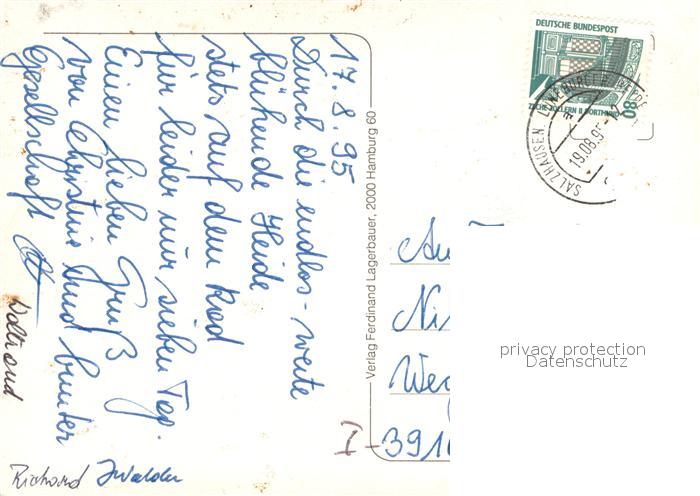 17.8.95
Durch die endlos-weite
blühende Heide
stets auf dem Rad
für leider nur sieben Tag.
Einen lieben Gruß
von Christine und bunter
Gesellschaft
Waltraud
Richard
Verlag Ferdinand Lagerbauer, 2000 Hamburg 60
DEUTSCHE BUNDESPOST
ZECHE ZOLLERN II, DORTMUND
80
SALZHAUSEN, LÜNEBURGER HEIDE
19.08.95
An
Ni
We
I-391
privacy protection
Datenschutz